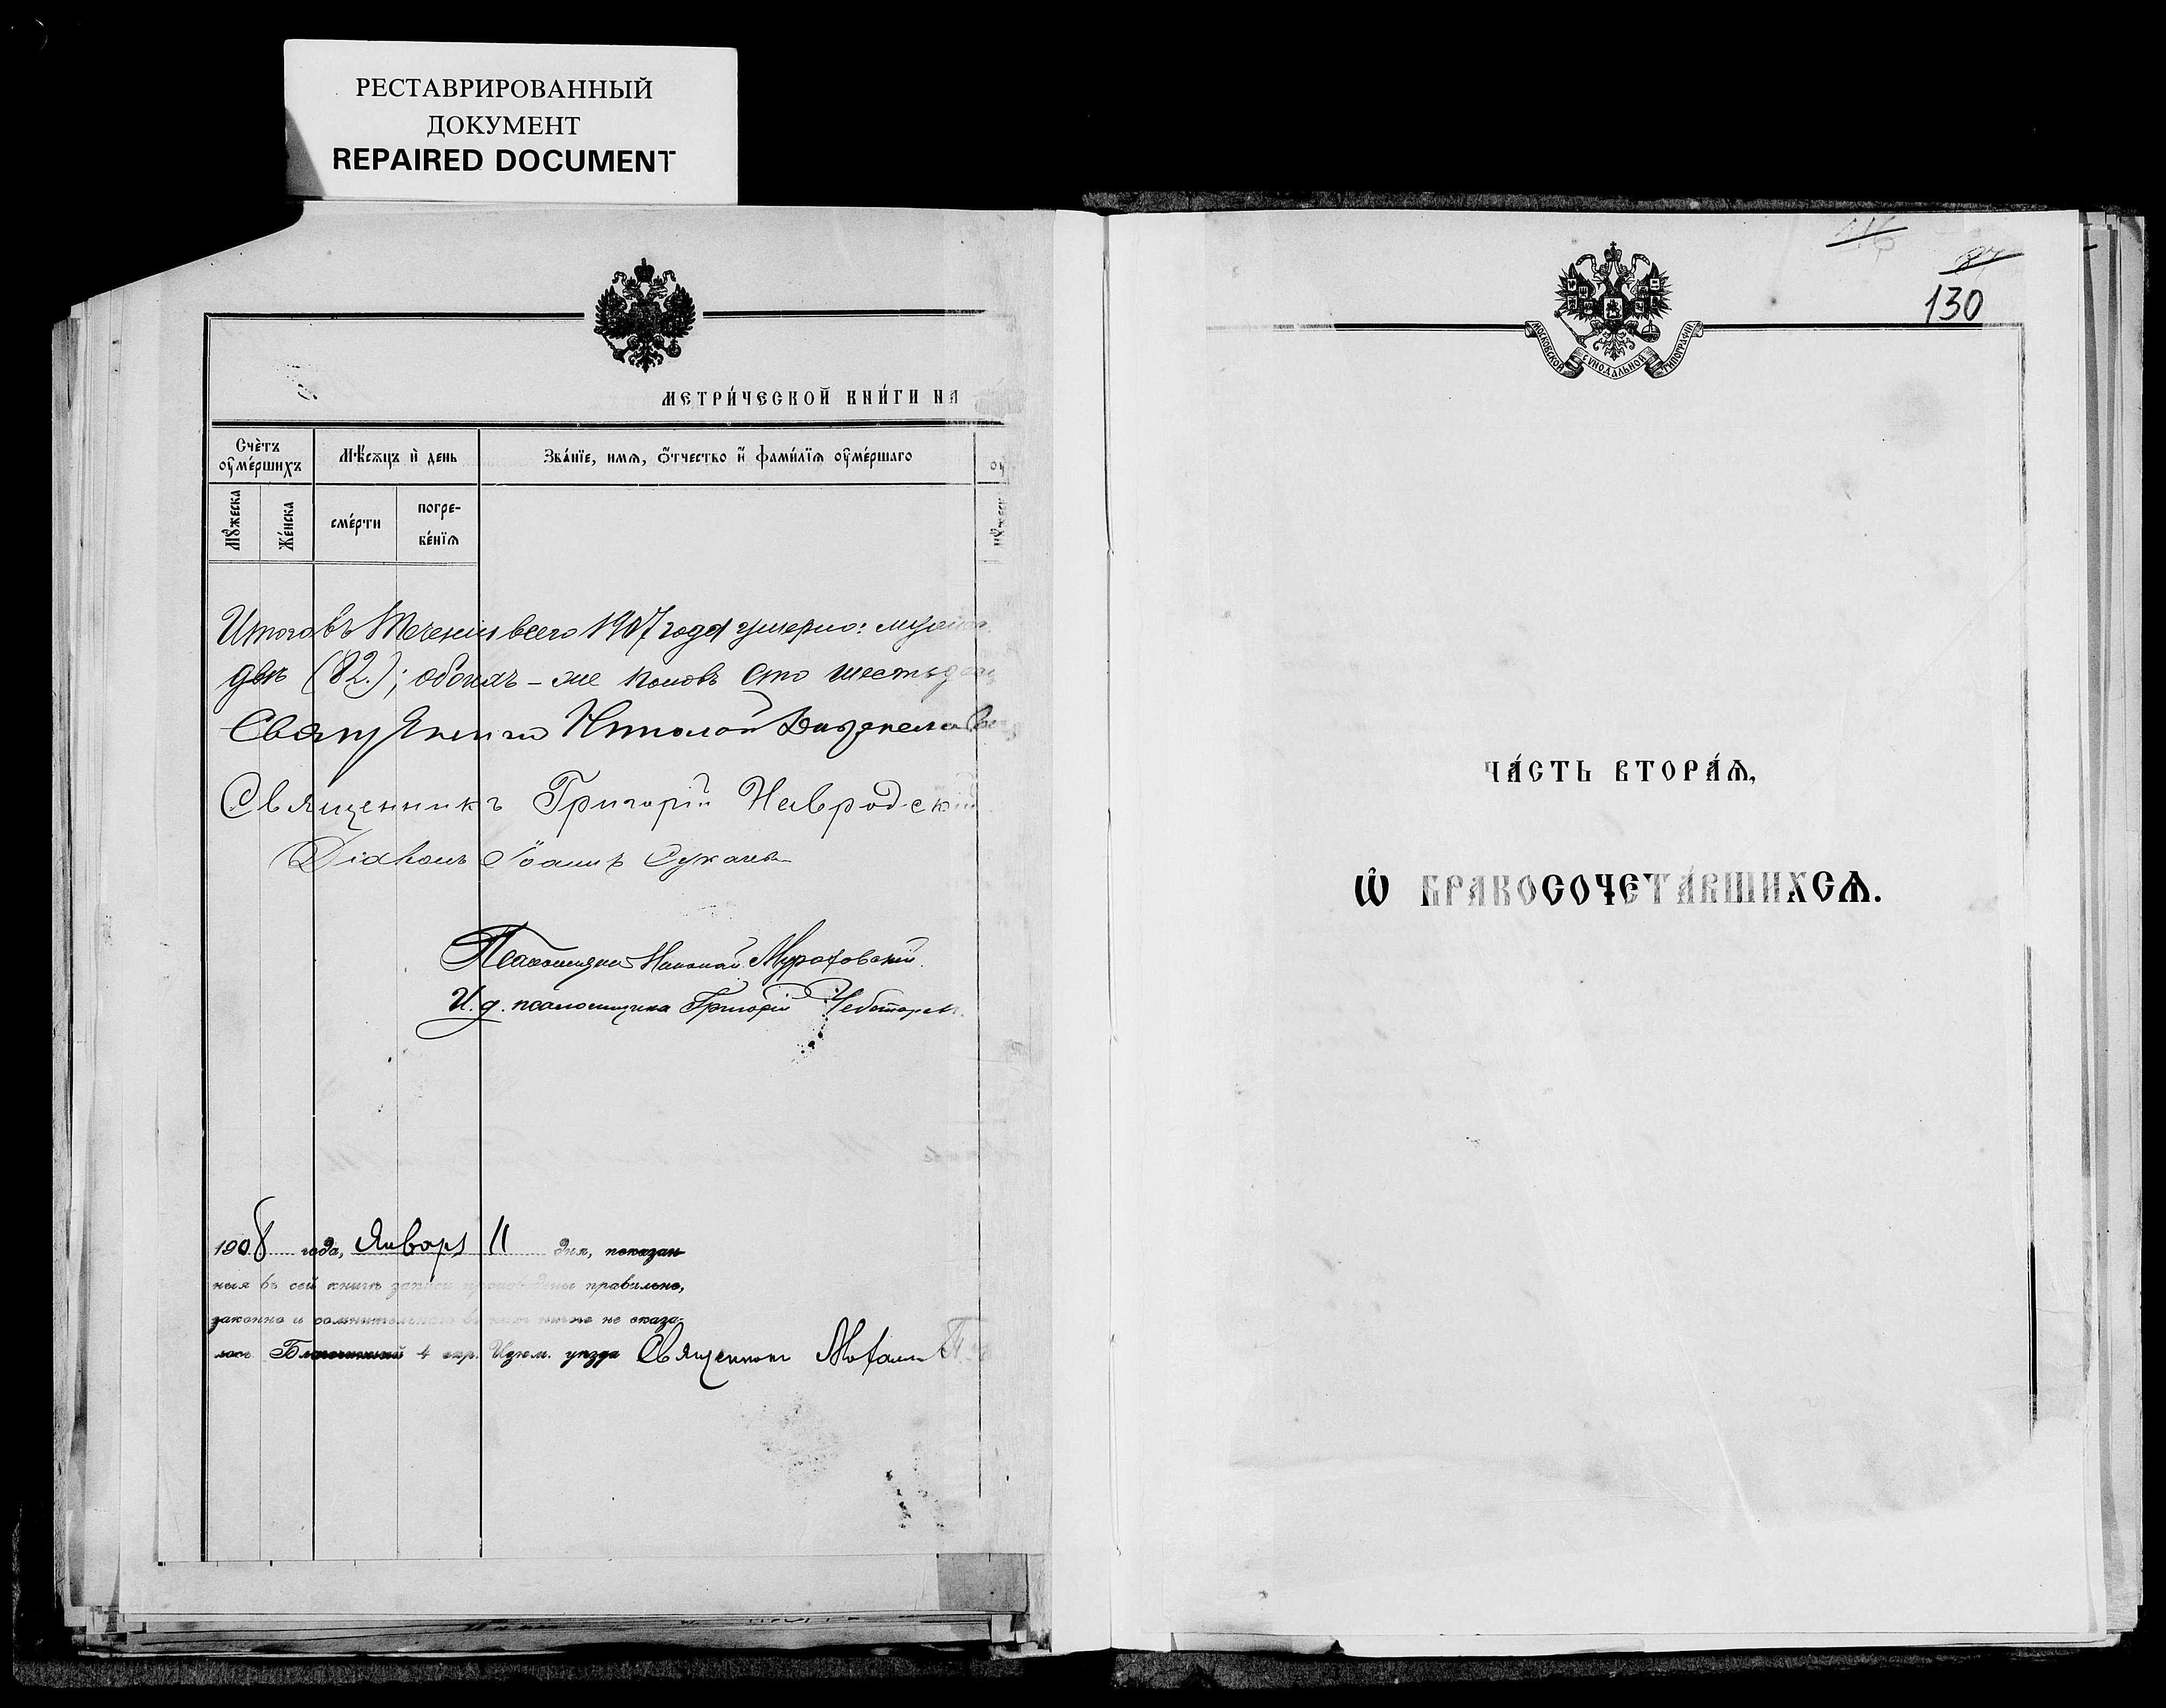 РЕСТАВРИРОВАННЫЙ
ДОКУМЕНТ
REPAIRED DOCUMENT
МЕТРИ́ЧЕСКОЙ КНИ́ГИ НА
Счѐтъ ᲂу҆ме́ршихъ
Мѣ́сѧцъ и҆ день
Зва́нїе, имѧ, ѻ҆́тчество и҆ фами́лїѧ ᲂу҆ме́ршаго
Мꙋ́жеска
Же́нска
сме́рти
погре-
бе́нїѧ
Итого въ теченіи всего 1907 года умерло:
двѣ (82.); обоихъ-же половъ сто
Священникъ Николай
Священникъ Григорій Навродскій
Діаконъ Іоаннъ
Псаломщикъ Николай Мураховскій.
И. д. псаломщика Григорій
1908 года, Январь 11 дня, показан
ныя въ сей книгѣ записи произведены правильно,
законно и сомнительнаго въ нихъ ничего не оказа-
лось Благочинный 4 окр. Изм. уѣзда Священникъ
116
87
130
МОСКОВСКОЙ СѴНОДАЛЬНОЙ ТИПОГРАФІИ
ЧА́СТЬ ВТОРА́Ѧ,
Ѡ҆ БРАКОСОЧЕТА́ВШИХСѦ.